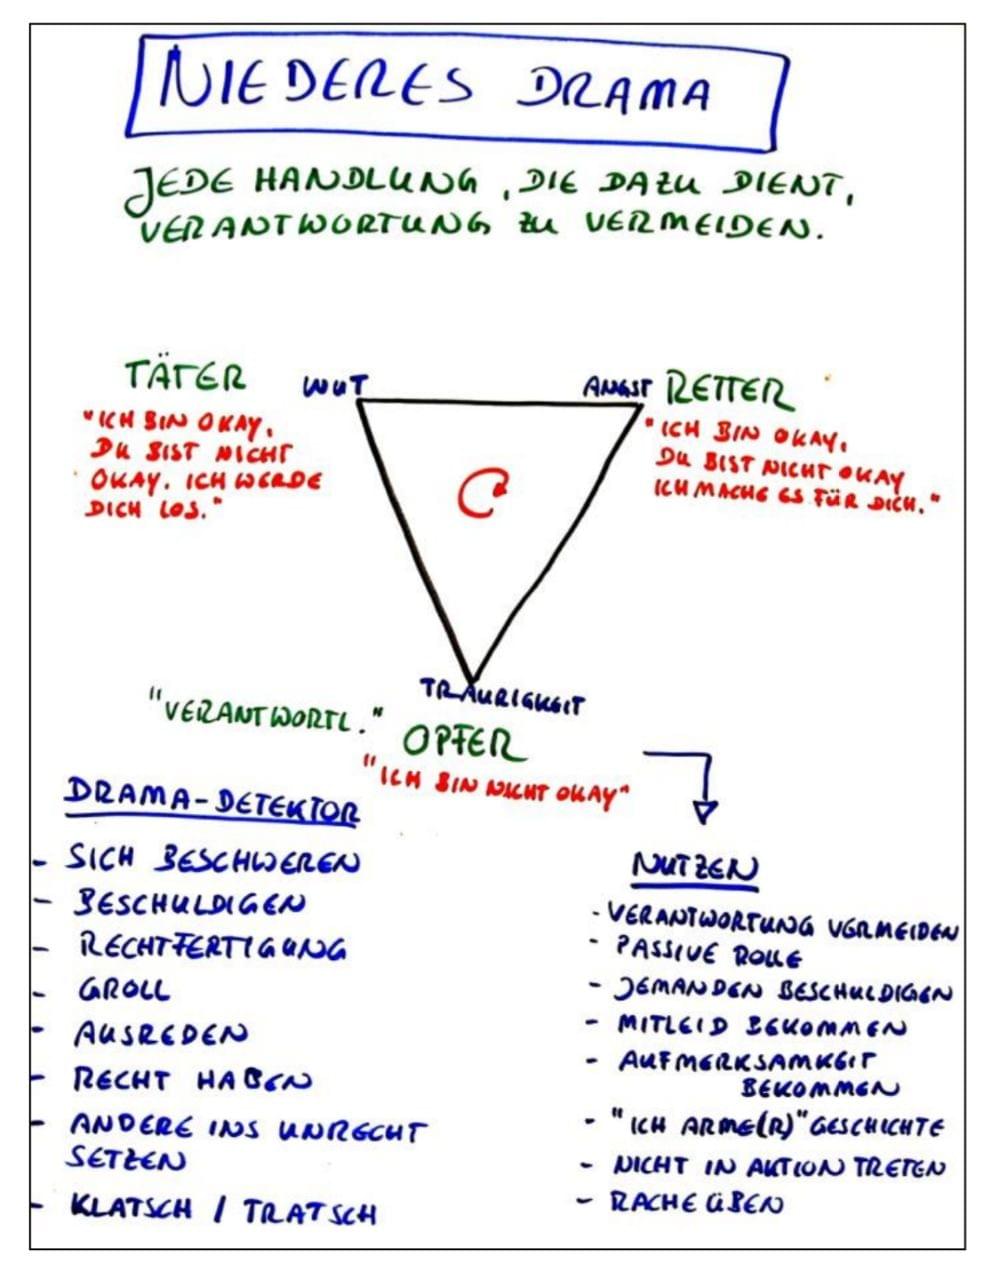 NIEDERES DRAMA
JEDE HANDLUNG, DIE DAZU DIENT,
VERANTWORTUNG ZU VERMEIDEN.
TÄTER
"ICH BIN OKAY.
DU BIST NICHT
OKAY. ICH WERDE
DICH LOS."
WUT
ANGST
RETTER
"ICH BIN OKAY.
DU BIST NICHT OKAY
ICH MACHE ES FÜR DICH."
TRAURIGKEIT
"VERANTWORTL."
OPFER
"ICH BIN NICHT OKAY"
DRAMA-DETEKTOR
- SICH BESCHWEREN
- BESCHULDIGEN
- RECHTFERTIGUNG
- GROLL
- AUSREDEN
- RECHT HABEN
- ANDERE INS UNRECHT
SETZEN
- KLATSCH / TRATSCH
NUTZEN
- VERANTWORTUNG VERMEIDEN
- PASSIVE ROLLE
- JEMANDEN BESCHULDIGEN
- MITLEID BEKOMMEN
- AUFMERKSAMKEIT
BEKOMMEN
- "ICH ARME(R)" GESCHICHTE
- NICHT IN AKTION TRETEN
- RACHE ÜBEN